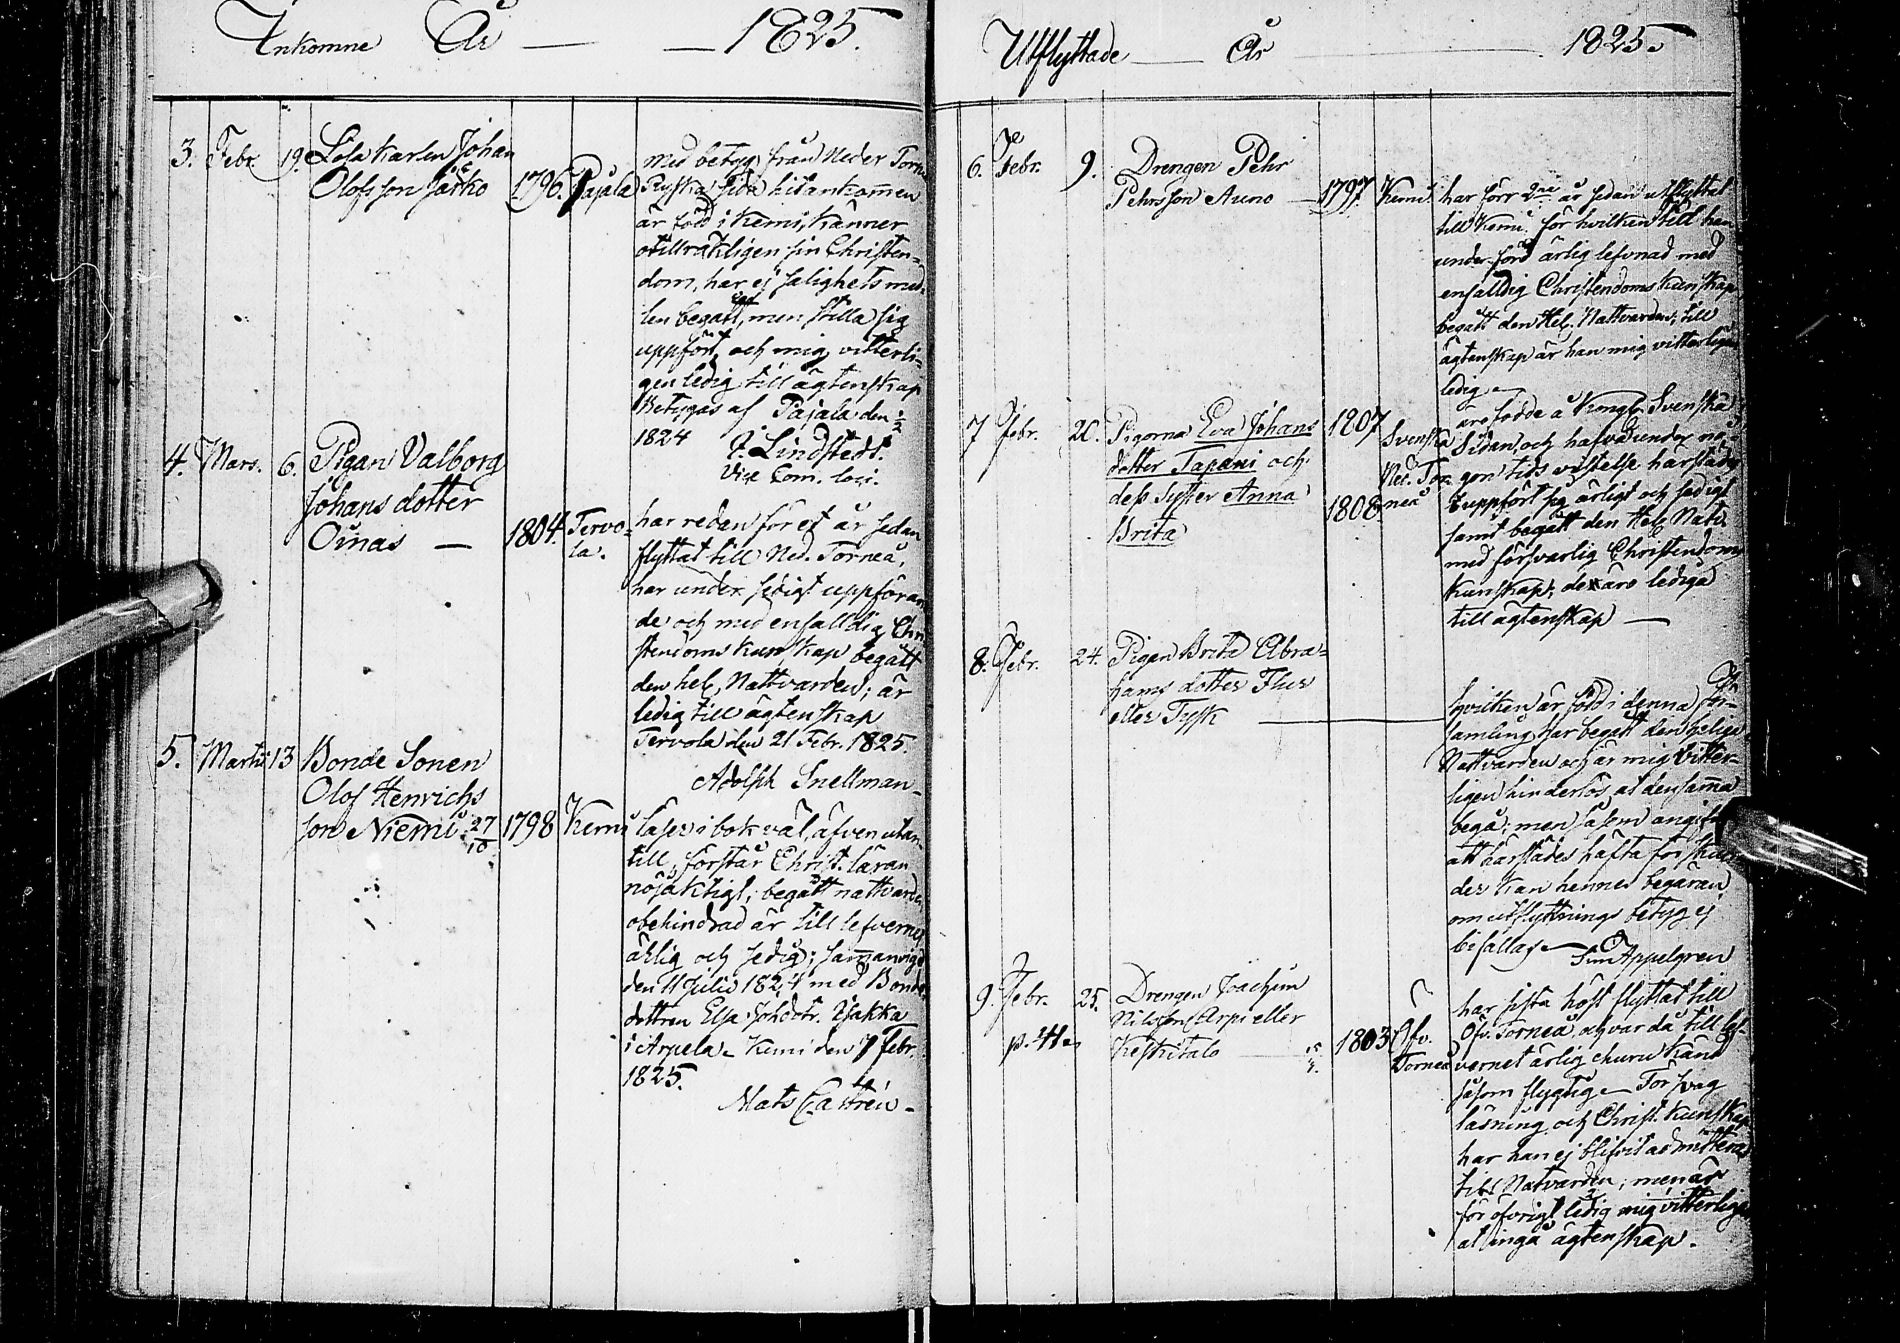 Inkomne År — — 1825.
3. Febr. 19. Lösa karlen Johan
Olofsson Jäsko 1796. Pajala
med betyg från Neder Torn.
Ryska sida hitankommen
är född i Kemi, känner
otillräkligen sin Christen-
dom, har ej salighets med-
len begått, men stilla sig
uppfört, och mig vitterli-
gen ledig till ägtenskap
Betygas af Pajala den
1824 J. Lindstedt.
Vice Com. loci.
4. Mars. 6. Pigan Valborg
Johans dotter
Oinas — 1804. Tervo-
la.
har redan för ett år sedan
flyttat till Ned. Torneå,
har under sedigt uppföran
de och med enfalldig Chri
stendoms kunskap begått
den hel. Nattvarden; är
ledig till ägtenskap
Tervola den 21 Febr. 1825.
Adolph Snellman.
5. Martii 13 Bonde Sonen
Olof Henrichs
son Niemi 27/10 1798 Kemi
läser i bok väl, äfven utan
till, förstår Christ. läran
nöjaktigt; begått nattvard.
obehindrad är till lefvernet
ärlig och sedig; sammanvigd
den 11 Julii 1824 med Bonde
dottren Elsa Johsdtr. Isakka
i Arpela. Kemi den 7 Febr.
1825.
Mats Castrén.
Utflyttade — År 1825.
6. Febr. 9. Drengen Pehr
Pehrsson Auno — 1797 Kemi
har förr 2ne år sedan utflyttat
till Kemi. för hvilken tid han
under förd ärlig lefvnad med
enfalldig Christendoms kunskap
begått den Hel. Nattvarden; till
ägtenskap är han mig vitterligen
ledig.
7 Febr. 20. Pigorna Eva Johans
dotter Tapani och
dess syster Anna
Brita
1807
1808
Svenska
Ned. Tor
neå
äro födde å Kongl. Svenska
Sidan, och hafva under nå-
gon tids vistelse härstädes
uppfört sig ärligt och sedigt
samt begått den Hel. Nattv.
med försvarlig Christendoms
kunskap; de äro lediga
till ägtenskap —
8. Febr. 24. Pigan Brita Abra-
hams dotter Flur
eller Tysk —
hvilken är född i denna för-
samling har begått den helige
Nattvarden och är mig vitter-
ligen hinderlös at densamma
begå; men såsom angifven
att härstädes häfta för skul-
der kan hennes begäran
om utflyttnings betyg ej
bifallas — Sim. Appelgren
9. Febr. 25. Drengen Joachim
p. 41. Nilsson Arpi eller
Keskitalo — 1803 Öfv.
Torneå
har sista höst flyttat till
Öfv. Torneå och var då till lef-
vernet ärlig ehuru känd
såsom flygtig — För svag
läsning och Christ. kunskap
har han ej blifvit admitterad
till Natvarden; men är
för öfrigt ledig mig vitterligen
at ingå ägtenskap.